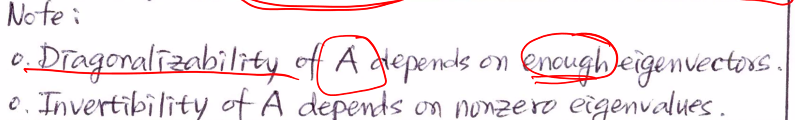 Note:
o. Diagonalizability of A depends on enough eigenvectors.
o. Invertibility of A depends on nonzero eigenvalues.